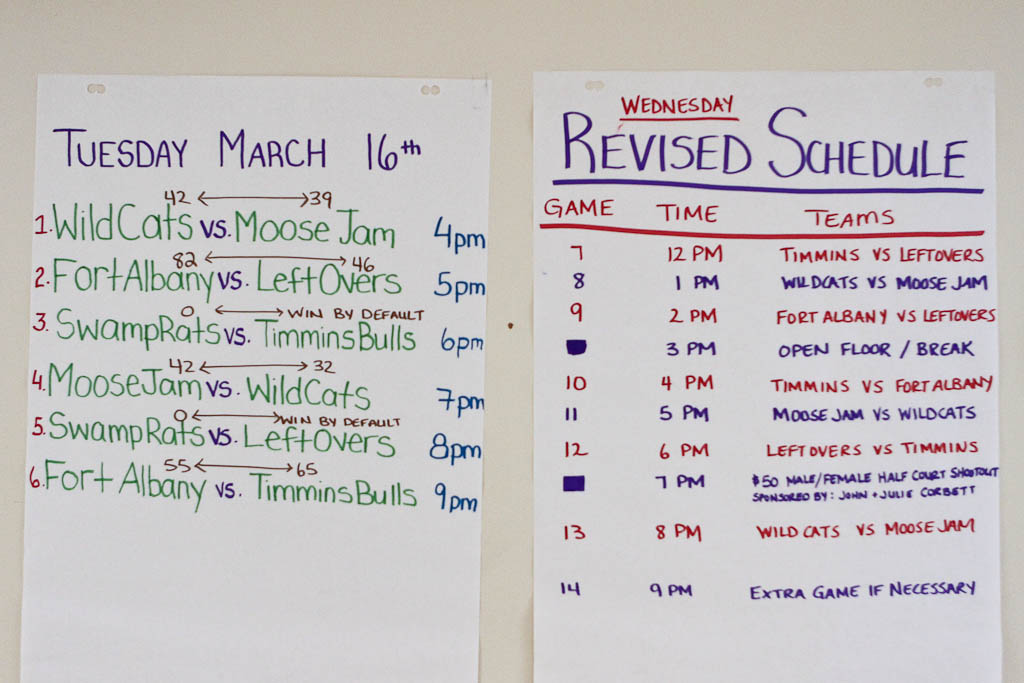 TUESDAY MARCH 16th
42 ↔ 39
1. WildCats vs. Moose Jam 4pm
82 ↔ 46
2. Fort Albany vs. LeftOvers 5pm
0 ↔ WIN BY DEFAULT
3. SwampRats vs. TimminsBulls 6pm
42 ↔ 32
4. MooseJam vs. WildCats 7pm
0 ↔ WIN BY DEFAULT
5. SwampRats vs. LeftOvers 8pm
55 ↔ 65
6. Fort Albany vs. TimminsBulls 9pm
WEDNESDAY
REVISED SCHEDULE
GAME TIME TEAMS
7 12 PM TIMMINS VS LEFTOVERS
8 1 PM WILDCATS VS MOOSE JAM
9 2 PM FORT ALBANY VS LEFTOVERS
3 PM OPEN FLOOR / BREAK
10 4 PM TIMMINS VS FORT ALBANY
11 5 PM MOOSE JAM VS WILDCATS
12 6 PM LEFTOVERS VS TIMMINS
7 PM $50 MALE/FEMALE HALF COURT SHOOTOUT
SPONSORED BY: JOHN + JULIE CORBETT
13 8 PM WILD CATS VS MOOSE JAM
14 9 PM EXTRA GAME IF NECESSARY